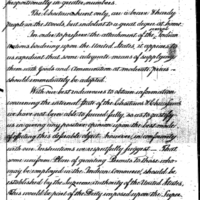 proportionally as greater numbers.
The Choctaws about only, one is known & hereby
people in the Woods, but indolent to a great degree at home.
In order to preserve the attachment of the Indian
nations bordering upon the United States, it appears
as expedient that some adequate means of supplying
them with Goods and Ammunition at moderate prices
should immediately be adopted.
With our best endeavours to obtain information
concerning the actual State of the Choctaws & Chickasaws
we have not been able to found fully, so as to justify
us in giving any positive opinion upon the best mode
of effecting this desirable object, however, in conformity
with our Instructions we respectfully suggest That
some uniform Plan of granting Permits to those who
may be employed in the Indian Commerce, should be
established by the Supreme Authority of the United States.
This would be part of the Policy imposed upon the Super-